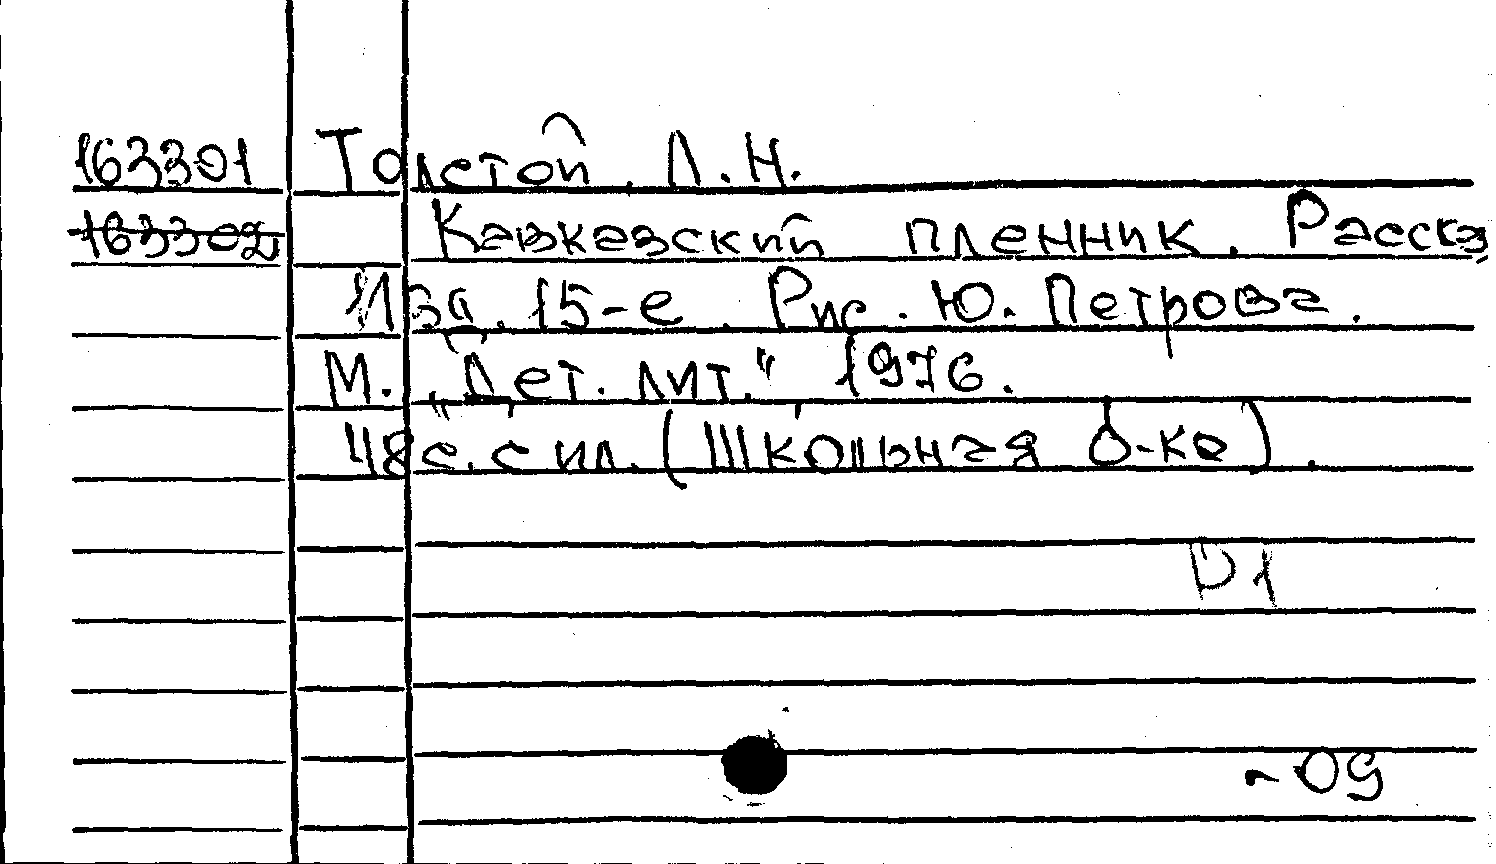 163301 Толстой, Л.Н.
163302 Кавказский пленник. Расска
Изд. 15-е. Рис. Ю. Петрова.
М. „Дет. лит." 1976.
48с. с ил. (Школьная б-ка).
Р1
-09